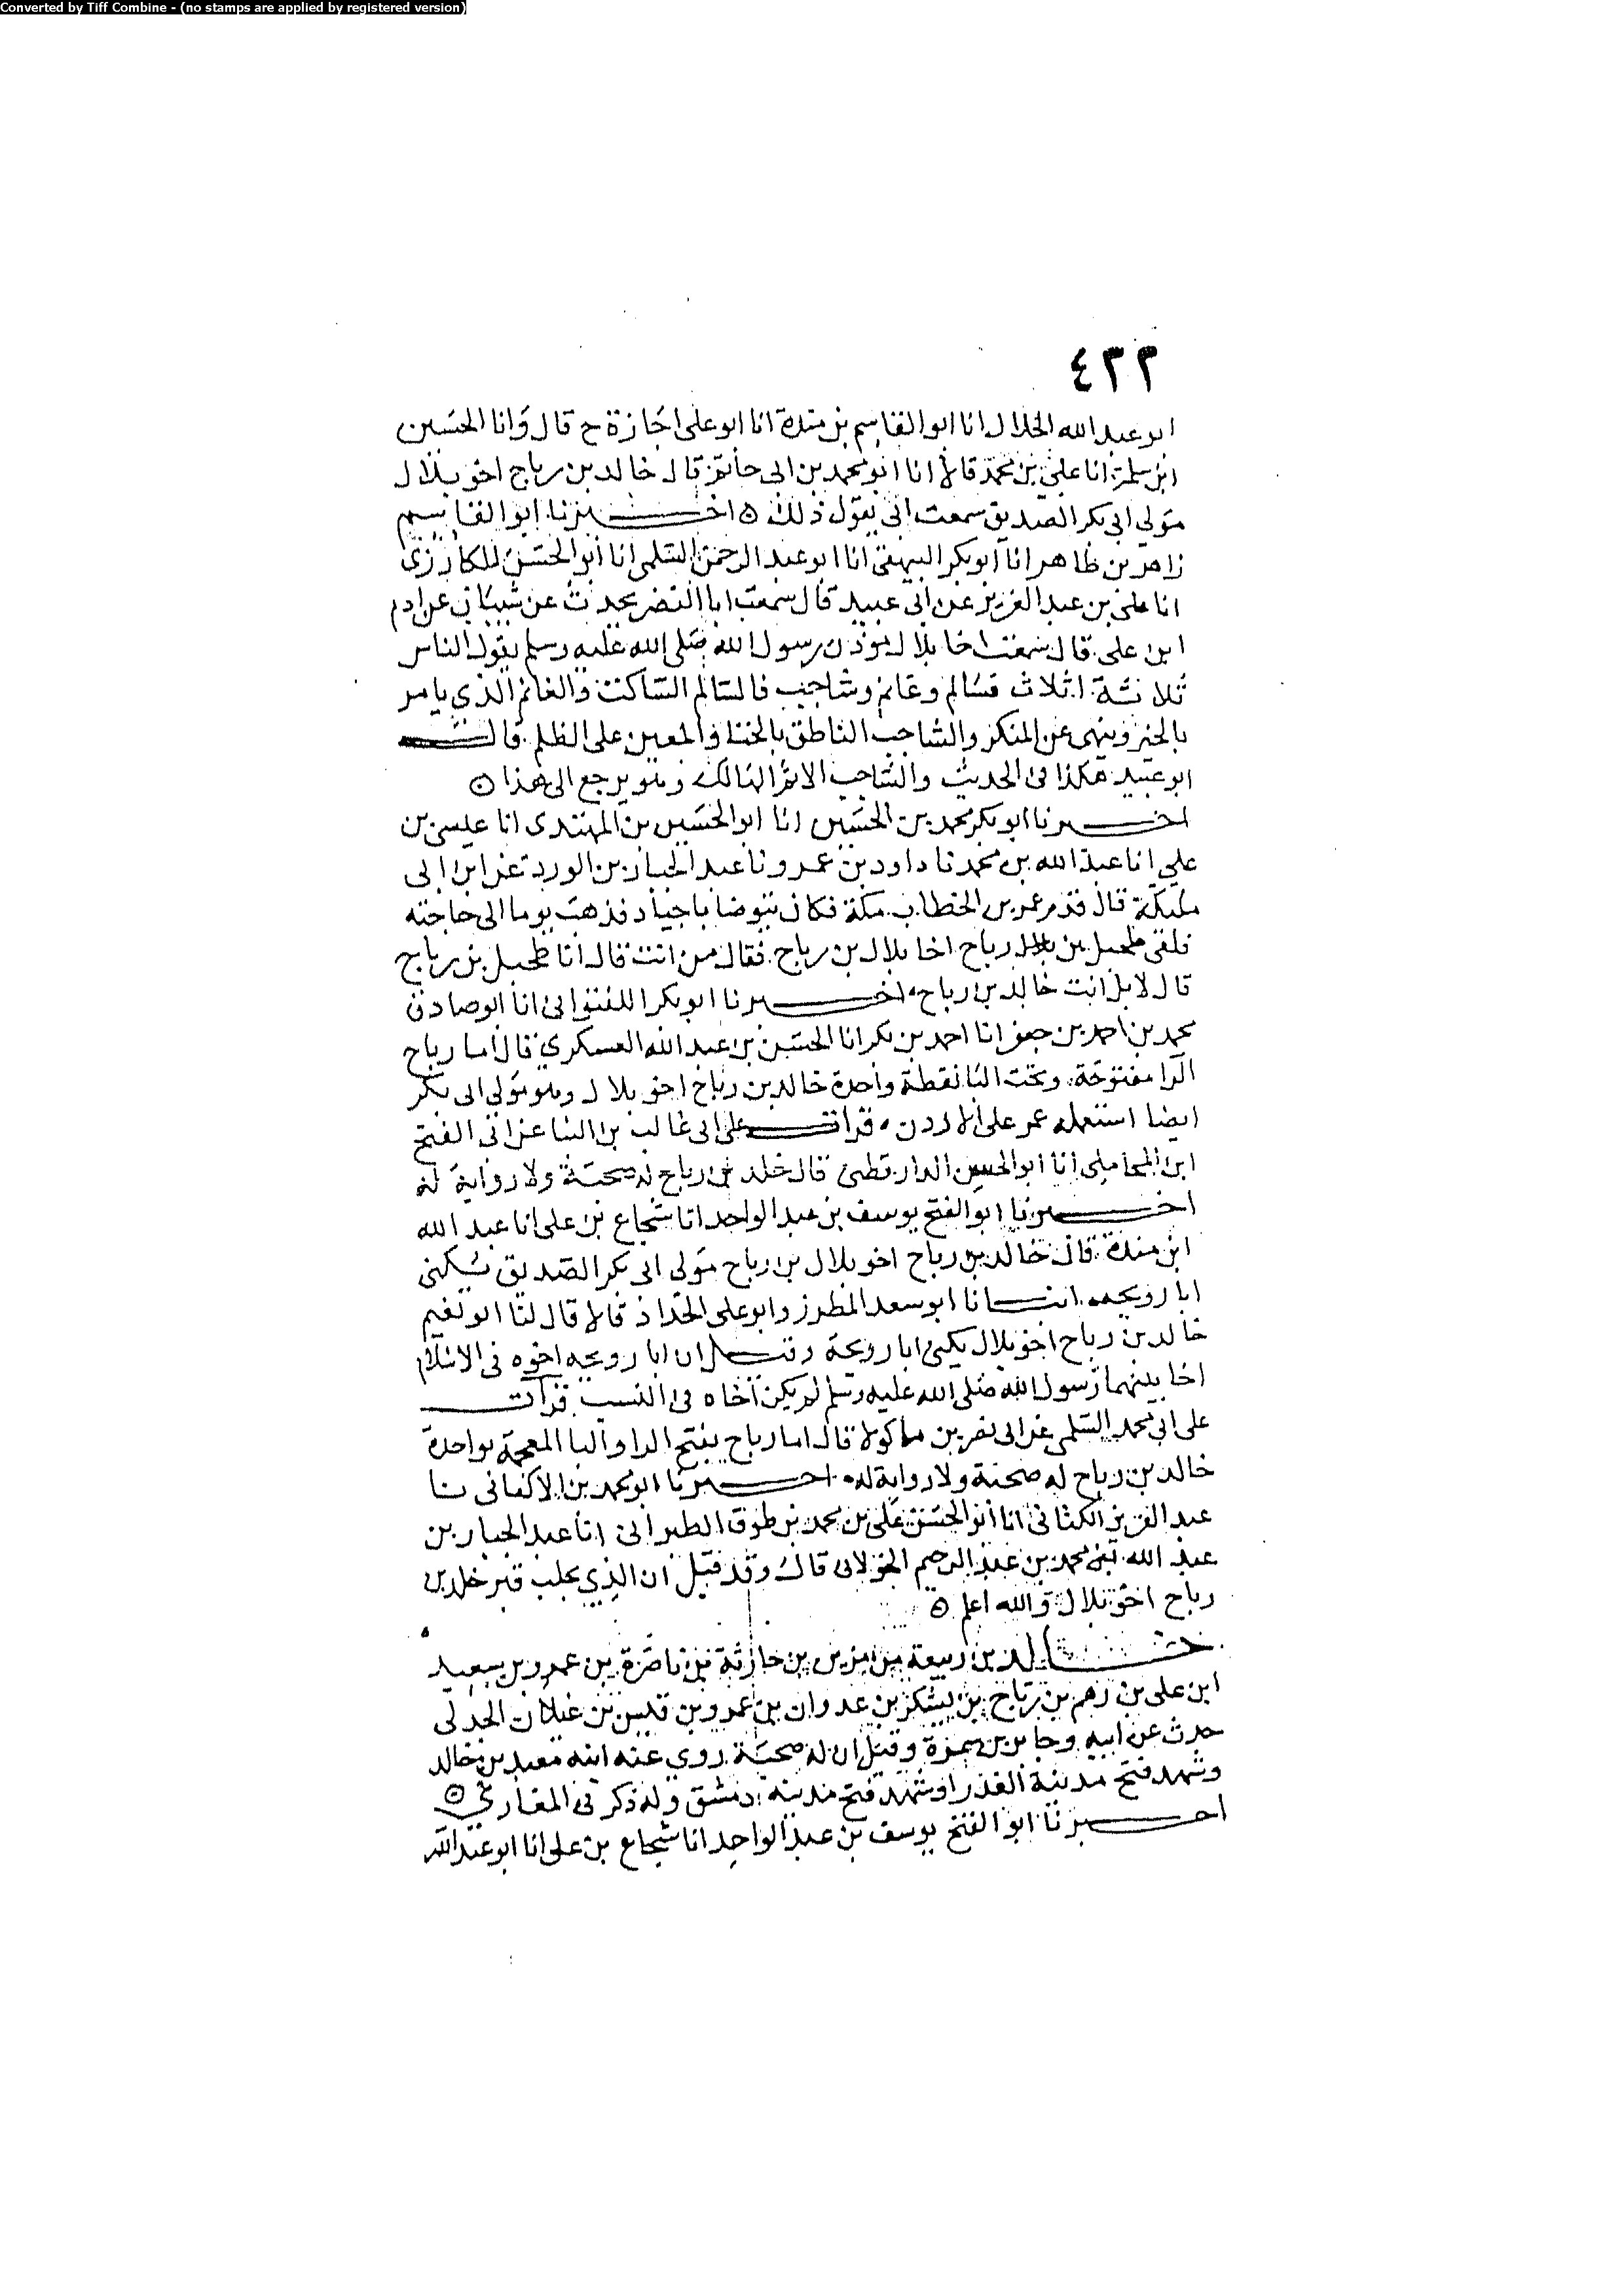 Converted by Tiff Combine - (no stamps are applied by registered version)
٤٣٣
ابو عبد الله الخلال انا ابو القاسم بن مندة انا ابو على اجازة ح قال وانا الحسين
ابن سلمة انا على بن محمد قالا انا ابو محمد بن ابى حاتم قال خالد بن رباح اخو بلال
مولى ابى بكر الصديق سمعت ابى يقول ذلك ه اخبرنا ابو القاسم
زاهر بن طاهر انا ابو بكر البيهقى انا ابو عبد الرحمن السلمى انا ابو الحسن الكارزى
انا على بن عبد العزيز عن ابى عبيد قال سمعت ابا النضر يحدث عن شيبان عن ادم
ابن على قال سمعت اخا بلال موذن رسول الله صلى الله عليه وسلم يقول الناس
ثلاثة اثلاث فسالم وغانم وشاجب فالسالم الساكت والغانم الذى يامر
بالخير وينهى عن المنكر والشاجب الناطق بالخنا والمعين على الظلم قال
ابو عبيد هكذا فى الحديث والشاجب الاثم الهالك وهو يرجع الى هذا ه
اخبرنا ابو بكر محمد بن الحسين انا ابو الحسين بن المهتدى انا عيسى بن
على انا عبد الله بن محمد نا داود بن عمرو نا عبد الجبار بن الورد عن ابن ابى
مليكة قال قدم عمر بن الخطاب مكة فكان يتوضا باجياد فذهب يوما الى حاجته
فلقى طحيل بن رباح اخا بلال بن رباح فقال من انت قال انا طحيل بن رباح
قال لا بل انت خالد بن رباح اخبرنا ابو بكر اللفتوانى انا ابو صادق
محمد بن احمد بن جعفر انا احمد بن بكر انا الحسين بن عبد الله العسكري قال اما رباح
الرا مفتوحة وتحت البا نقطة واحدة خالد بن رباح اخو بلال وهو مولى ابى بكر
ايضا استعمله عمر على الاردن قرات على ابى غالب بن البنا عن ابى الفتح
ابن المحاملى انا ابو الحسن الدارقطنى قال خلد بن رباح له صحبة ولا رواية له
اخبرنا ابو الفتح يوسف بن عبد الواحد انا شجاع بن على انا عبد الله
ابن مندة قال خالد بن رباح اخو بلال بن رباح مولى ابى بكر الصديق يكنى
ابا رويحه انبانا ابو سعد المطرز وابو على الحداد قالا قال لنا ابو نعيم
خالد بن رباح اخو بلال يكنى ابا رويحة وقيل ان ابا رويحه اخوه فى الاسلام
اخا بينهما رسول الله صلى الله عليه وسلم لم يكن اخاه فى النسب قرات
على ابى محمد السلمى عن ابى نصر بن ماكولا قال اما رباح بفتح الرا والبا المعجمة بواحدة
خالد بن رباح له صحبة ولا رواية له اخبرنا ابو محمد بن الاكفانى نا
عبد العزيز الكتانى انا ابو الحسن على بن محمد بن طوق الطبرانى انا عبد الجبار بن
عبد الله نا محمد بن عبد الرحيم الخولانى قال وقد قيل ان الذي بحلب قبر خلد بن
رباح اخو بلال والله اعلم ه
خالد بن ربيعة بن مزين بن حارثة بن ناضرة بن عمرو بن سعيد
ابن على بن رهم بن رباح بن يشكر بن عدوان بن عمرو بن قيس بن غيلان الجدلى
حدث عن ابيه وجابر بن سمرة وقيل ان له صحبة روى عنه ابنه معبد بن خالد
وشهد فتح مدينة العذرا وشهد فتح مدينه دمشق وله ذكر فى المغازى ه
اخبرنا ابو الفتح يوسف بن عبد الواحد انا شجاع بن على انا ابو عبد الله